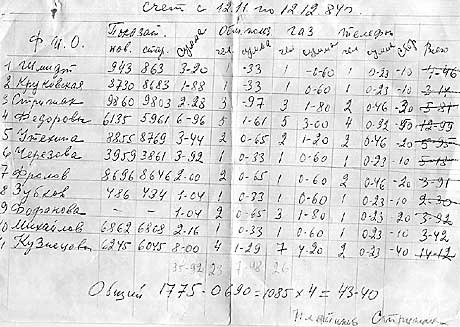 Счет с 12.11 по 12.12.84г.
Ф.И.О. Показай нов. стар. сумма Общ. польз чел сумма газ чел сумма телефон чел сумма Всего
1 Шмидт 943 863 3-20 1 -33 1 -0-60 1 0-23 -10
2 Круковская 3730 3683 1-88 1 -33 1 0-60 1 0-23 -10
3 9860 9803 2-28 3 -97 3 1-80 2 0-46 -20
4 Федорова 6135 5961 6-96 5 1-61 5 3-00 4 0-92
5 Утехина 8855 8769 3-44 2 0-65 2 1-20 2 0-46 -20
6 Черезова 3959 3861 3-92 1 0-33 1 0-60 1 0-23 -10
7 Фролов 8696 8646 2-00 2 0-65 1 0-60 2 0-46 -20 3-91
8 Зубков 486 434 1-04 1 0-33 1 0-60 1 0-23 -10 2-30
9 - - 1-04 2 0-65 3 1-80 1 0-23 20 3-92
10 Михайлов 6862 6808 2-16 1 0-33 1 0-60 1 0-23 -10 3-42
11 Кузнецова 6245 6045 8-00 4 1-29 7 4-20 2 0-23 -40 14-12
35-92 23 26
Общий 1775-0690=1085×4=43-40